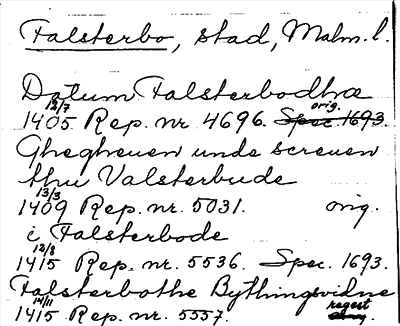 Falsterbo, stad, Malm. l.
Datum Falsterbodhæ
12/7 orig.
1405 Rep. nr 4696. Spec. 1693.
Ghegheuen unde screuen
thu Valsterbude
13/3
1409 Rep. nr. 5031. orig.
i Falsterbode
12/8
1415 Rep. nr. 5536. Spec. 1693.
Falsterbothe Bythingsvidne
14/11 regest
1415 Rep. nr. 5557.